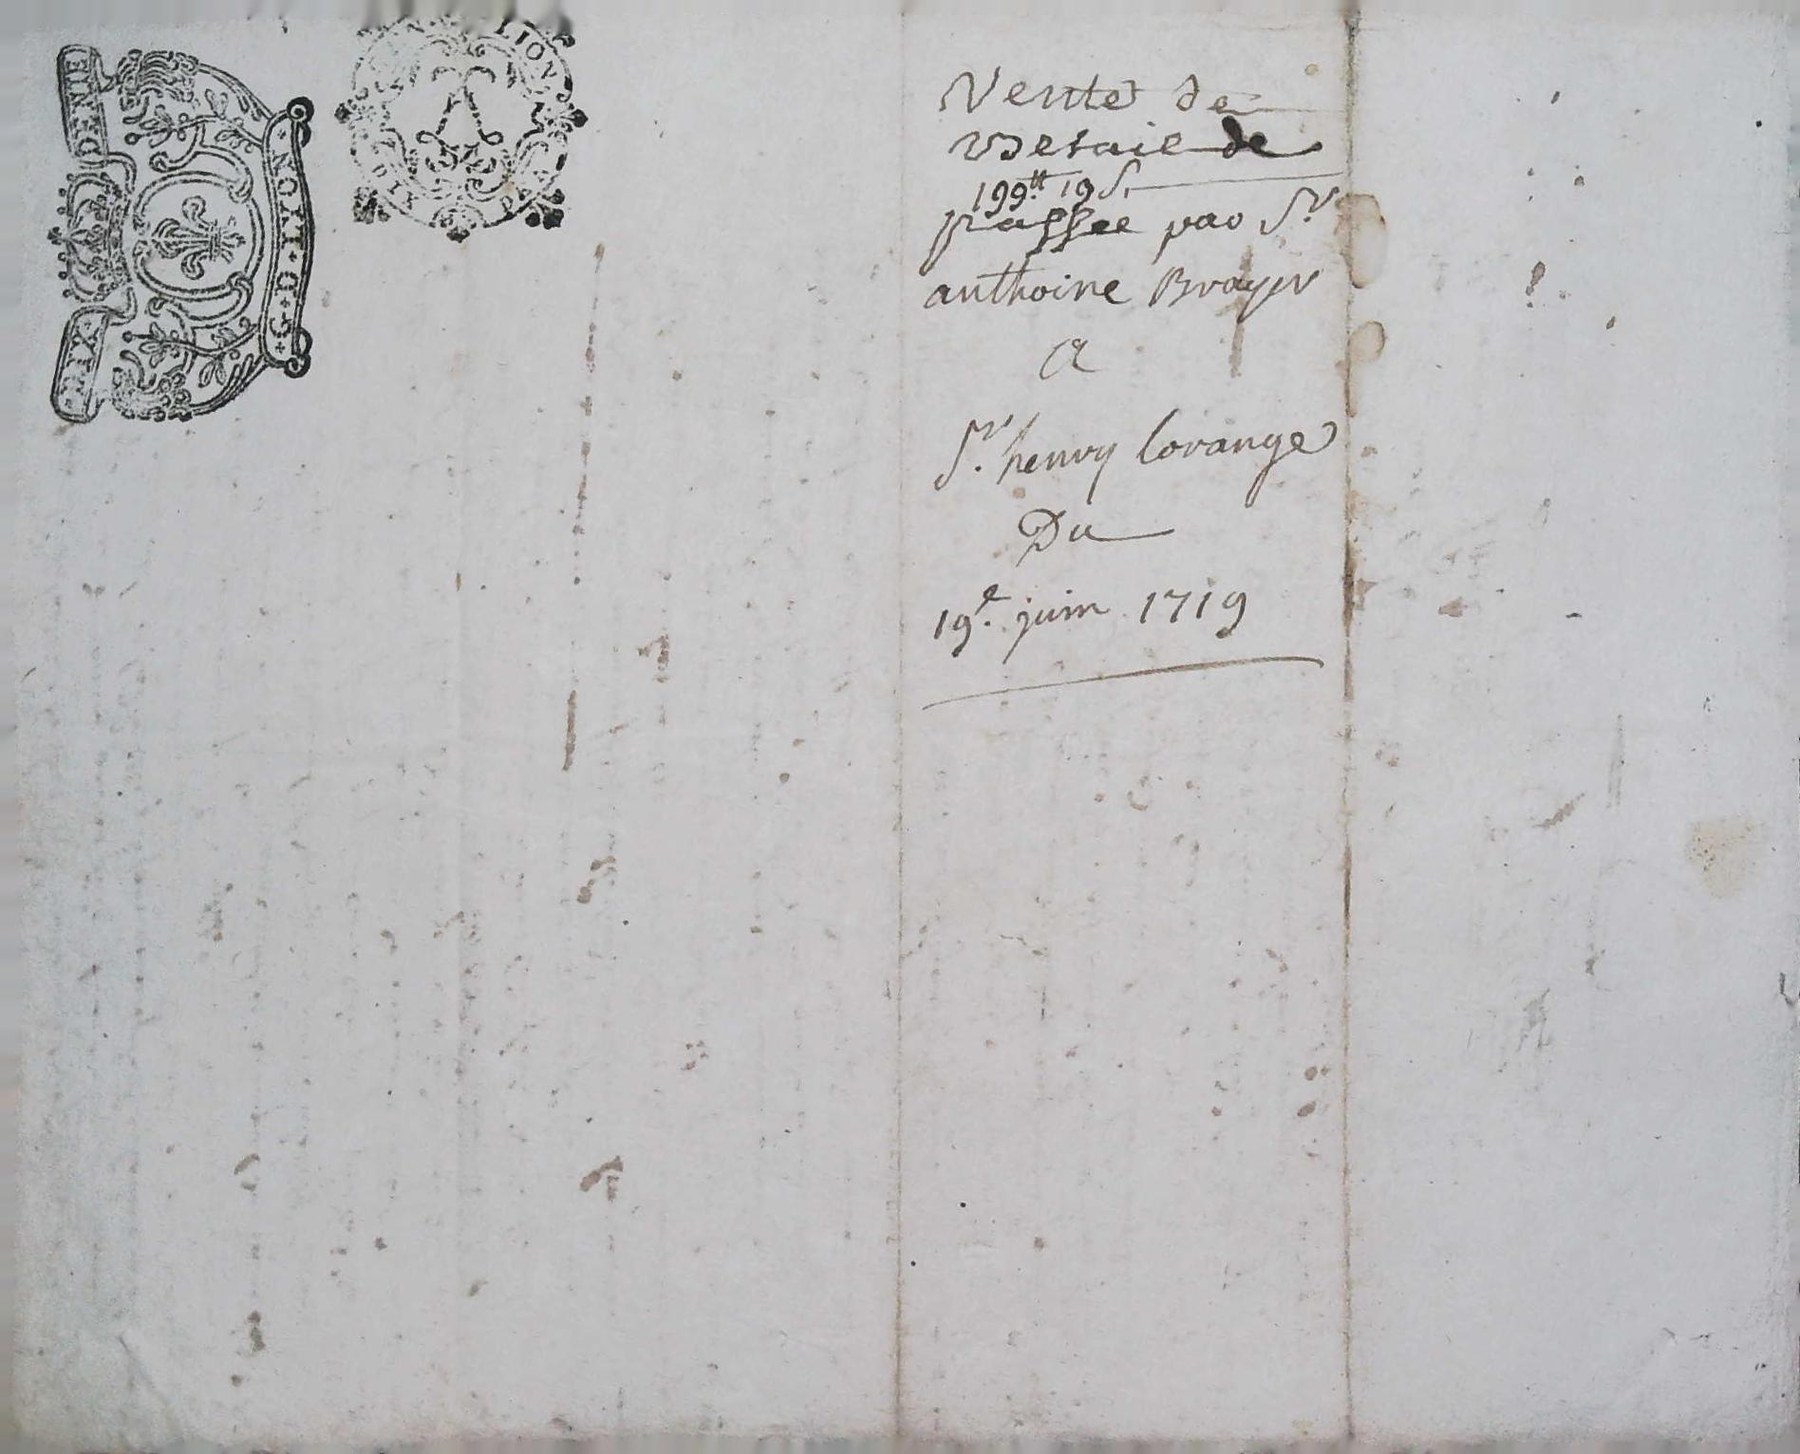 SIX DENIE
LION G G
LION
SIX D
Vente de
Betail de
199tt 19 s.
passee par Sr
anthoine Brayer
a
Sr. henry lorange
Du
19e. juin 1719